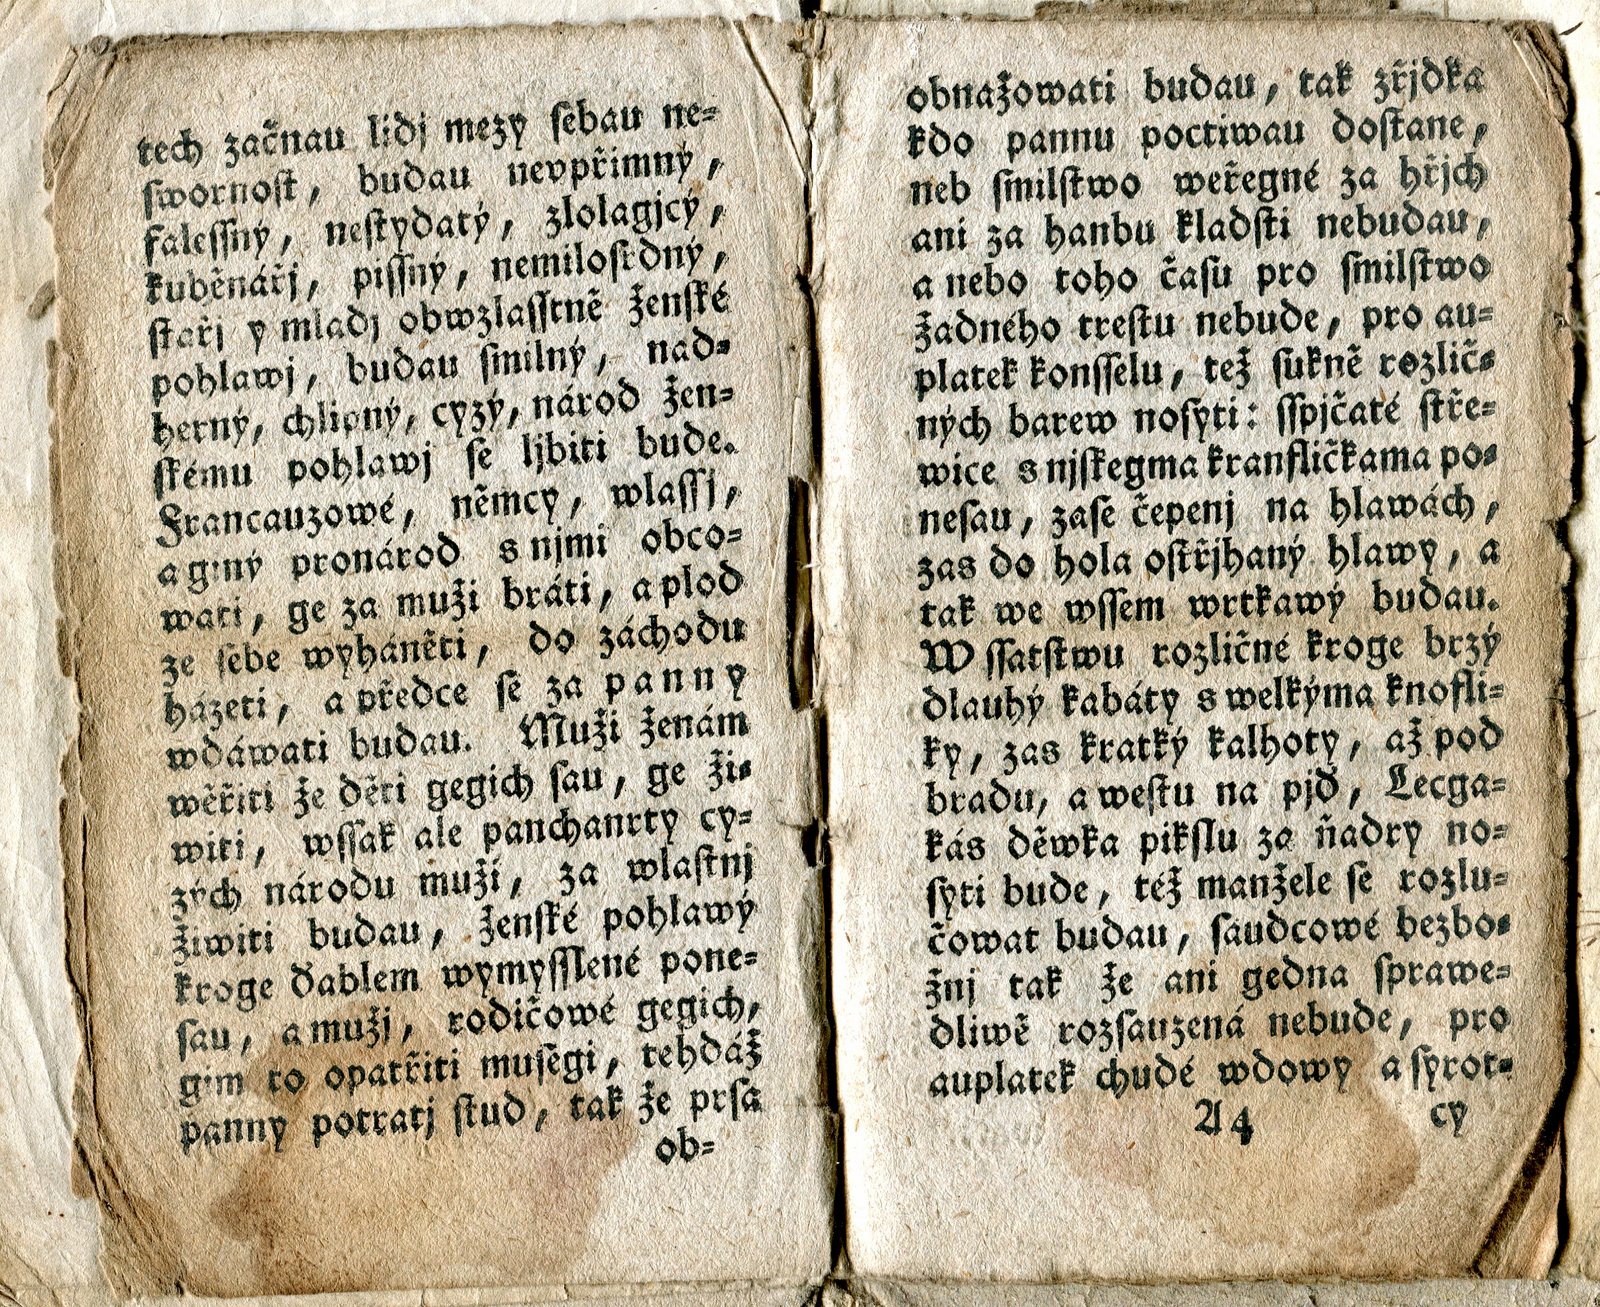 tech začnau lidj mezy sebau ne=
swornost, budau nevpřimný,
falessný, nestydatý, zlolagjcý,
kuběnářj, pissný, nemilosrdný,
stařj y mladj obwzlasstně ženské
pohlawj, budau smilný, nad=
herný, chlipný, cyzý, národ žen=
skému pohlawj se ljbiti bude.
Francauzowé, němcy, wlassj,
a giný pronárod s njmi obco=
wati, ge za muži bráti, a plod
ze sebe wyháněti, do záchodu
házeti, a předce se za panny
wdáwati budau. Muži ženám
wěřiti že děti gegich sau, ge ži=
witi, wssak ale panchanrty cy=
zých národu muži, za wlastnj
žiwiti budau, ženské pohlawý
kroge ďablem wymysslené pone=
sau, a mužj, rodičowé gegich,
gim to opatřiti musegi, tehdáž
panny potratj stud, tak že prsa
ob=
obnažowati budau, tak zřjdka
kdo pannu poctiwau dostane,
neb smilstwo weřegné za hřjch
ani za hanbu kladsti nebudau,
a nebo toho času pro smilstwo
žadného trestu nebude, pro au=
platek konsselu, tež sukně rozlič=
ných barew nosyti: sspjčaté stře=
wice s njskegma kranfličkama po=
nesau, zase čepenj na hlawách,
zas do hola ostřjhaný hlawy, a
tak we wssem wrtkawý budau.
W ssatstwu rozličné kroge brzý
dlauhý kabáty s welkýma knofli=
ky, zas kratký kalhoty, až pod
bradu, a westu na pjď, Lecga=
kás děwka pikslu za ňadry no=
syti bude, též manžele se rozlu=
čowat budau, saudcowé bezbo=
žnj tak že ani gedna sprawe=
dliwě rozsauzená nebude, pro
auplatek chudé wdowy a syrot=
A4 cy